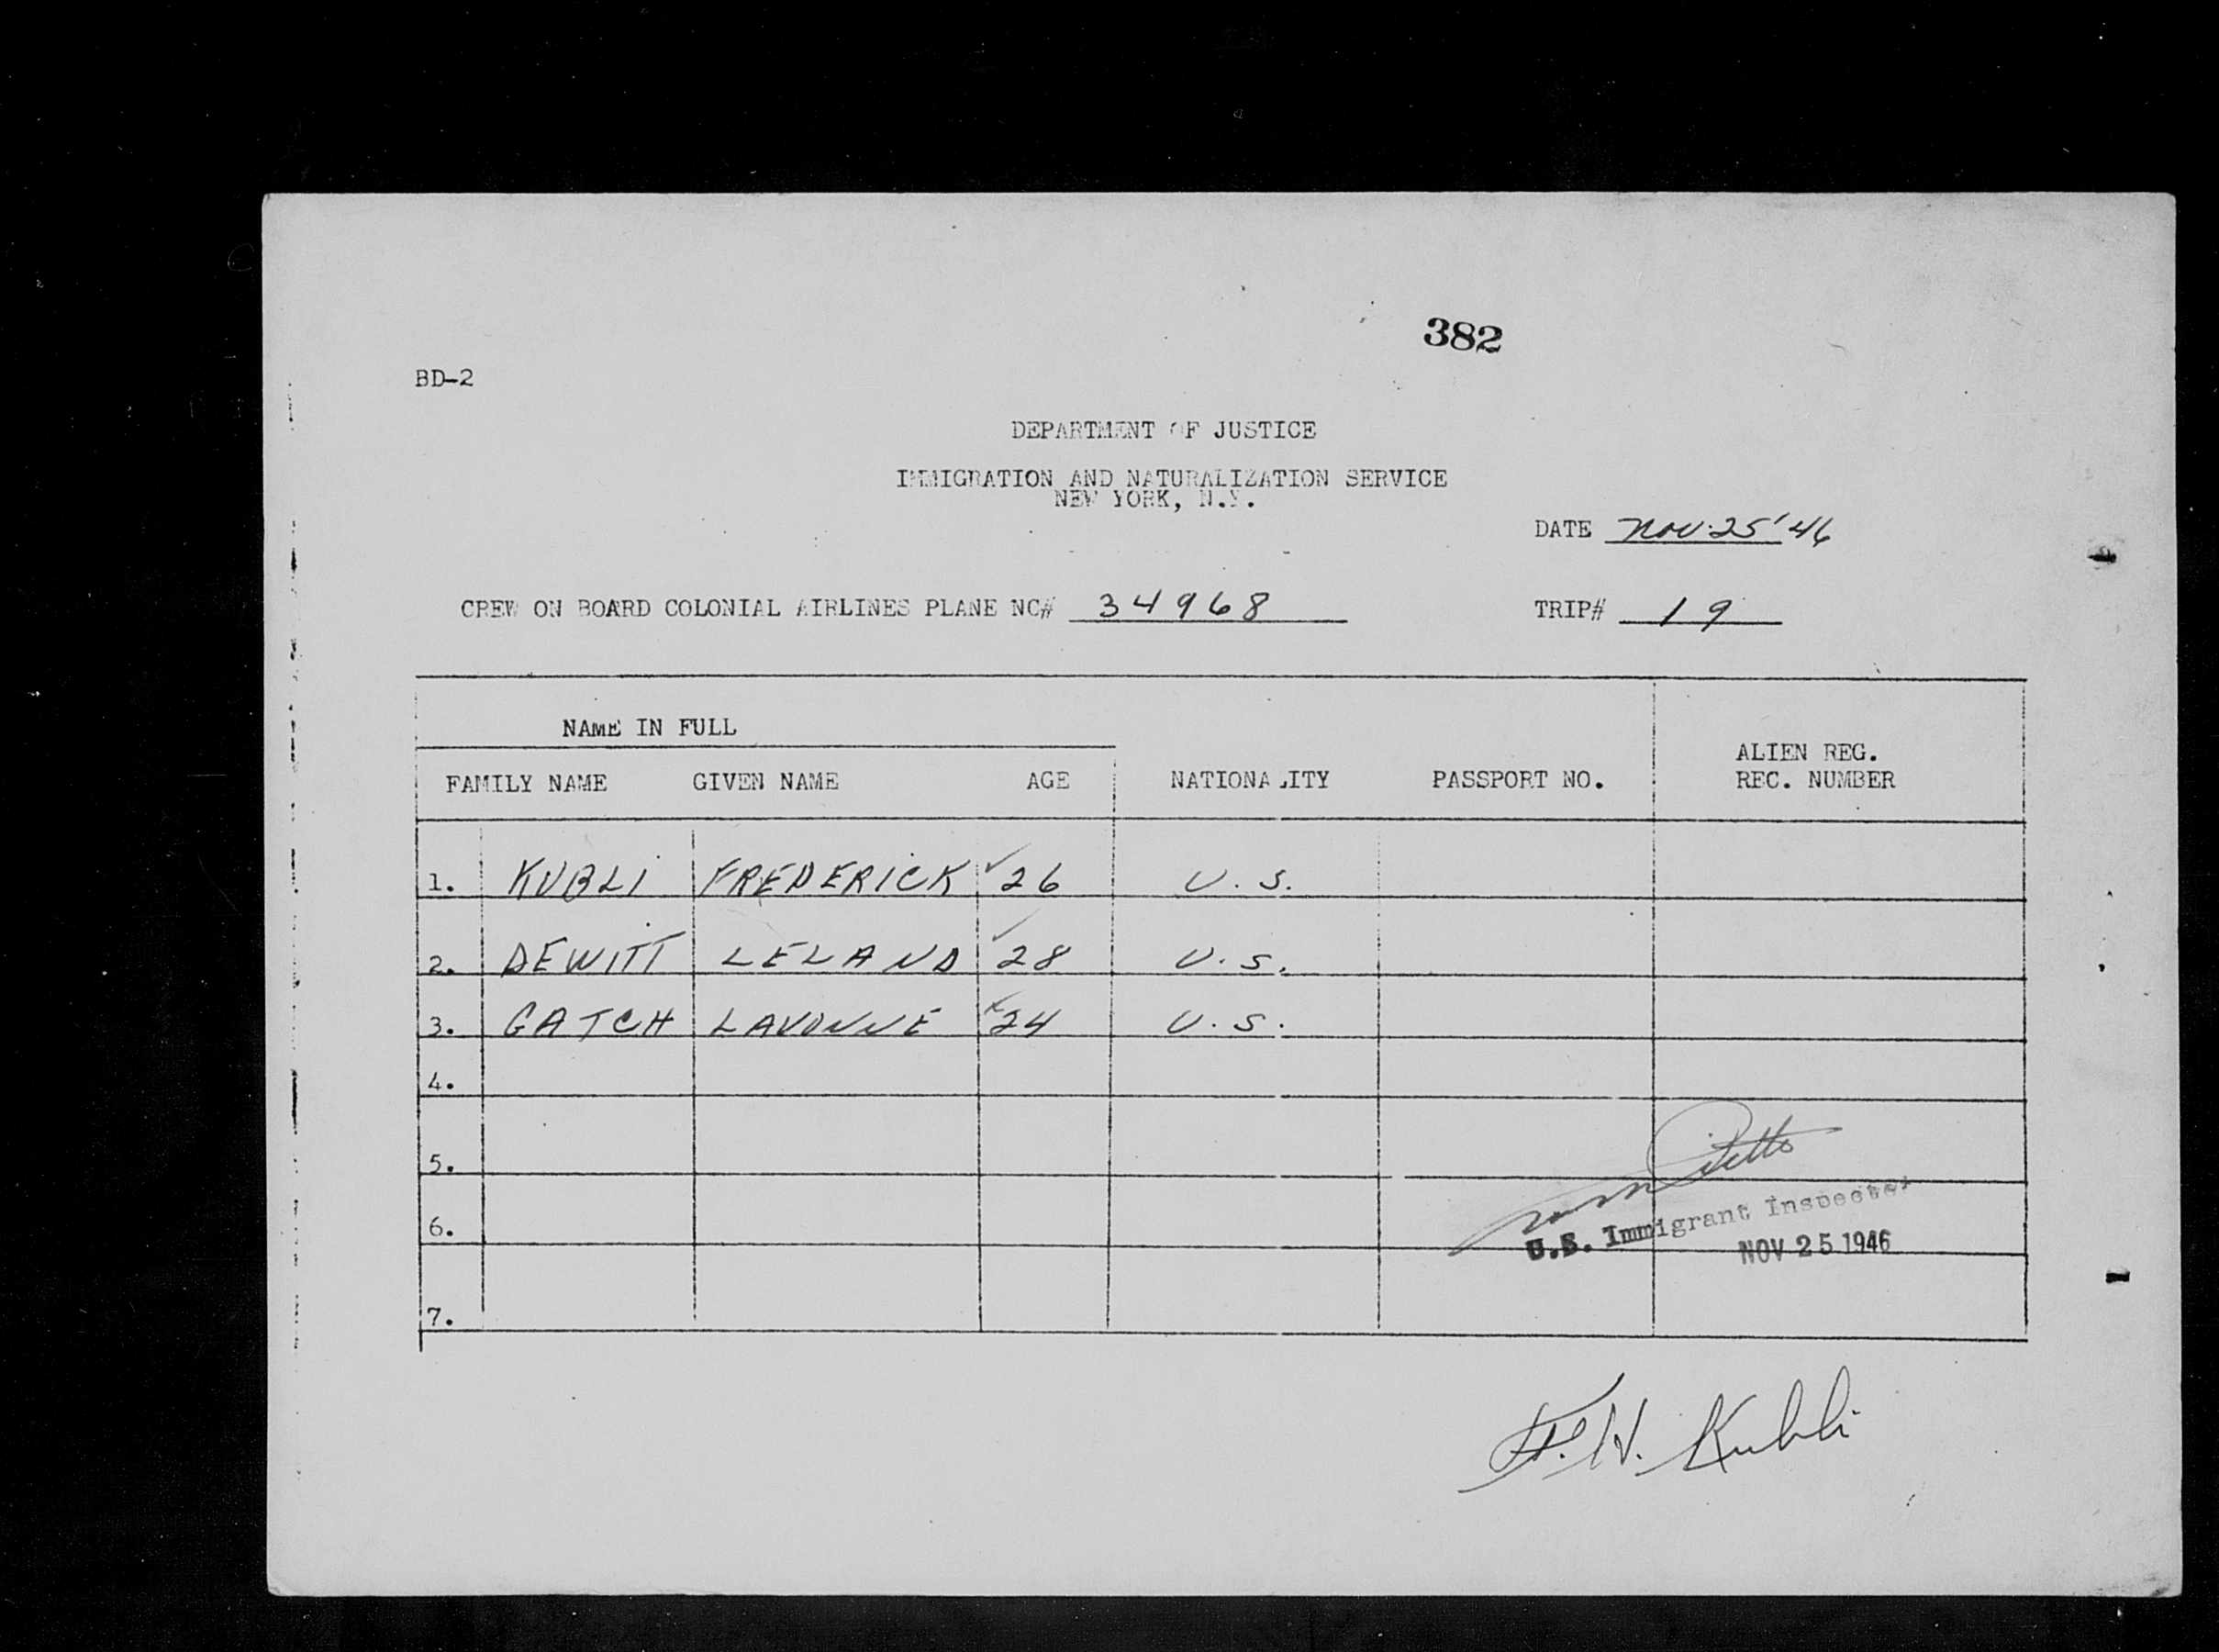 382
BD-2
DEPARTMENT OF JUSTICE
IMMIGRATION AND NATURALIZATION SERVICE
NEW YORK, N.Y.
DATE Nov. 25 '46
CREW ON BOARD COLONIAL AIRLINES PLANE NC# 34968 TRIP# 19
NAME IN FULL
ALIEN REG.
FAMILY NAME GIVEN NAME AGE NATIONALITY PASSPORT NO. REC. NUMBER
1. KUBLI FREDERICK 26 U.S.
2. DEWITT LELAND 28 U.S.
3. GATCH LAVONNE 24 U.S.
4.
5.
6.
U.S. Immigrant Inspector
NOV 25 1946
7.
F.H. Kubli